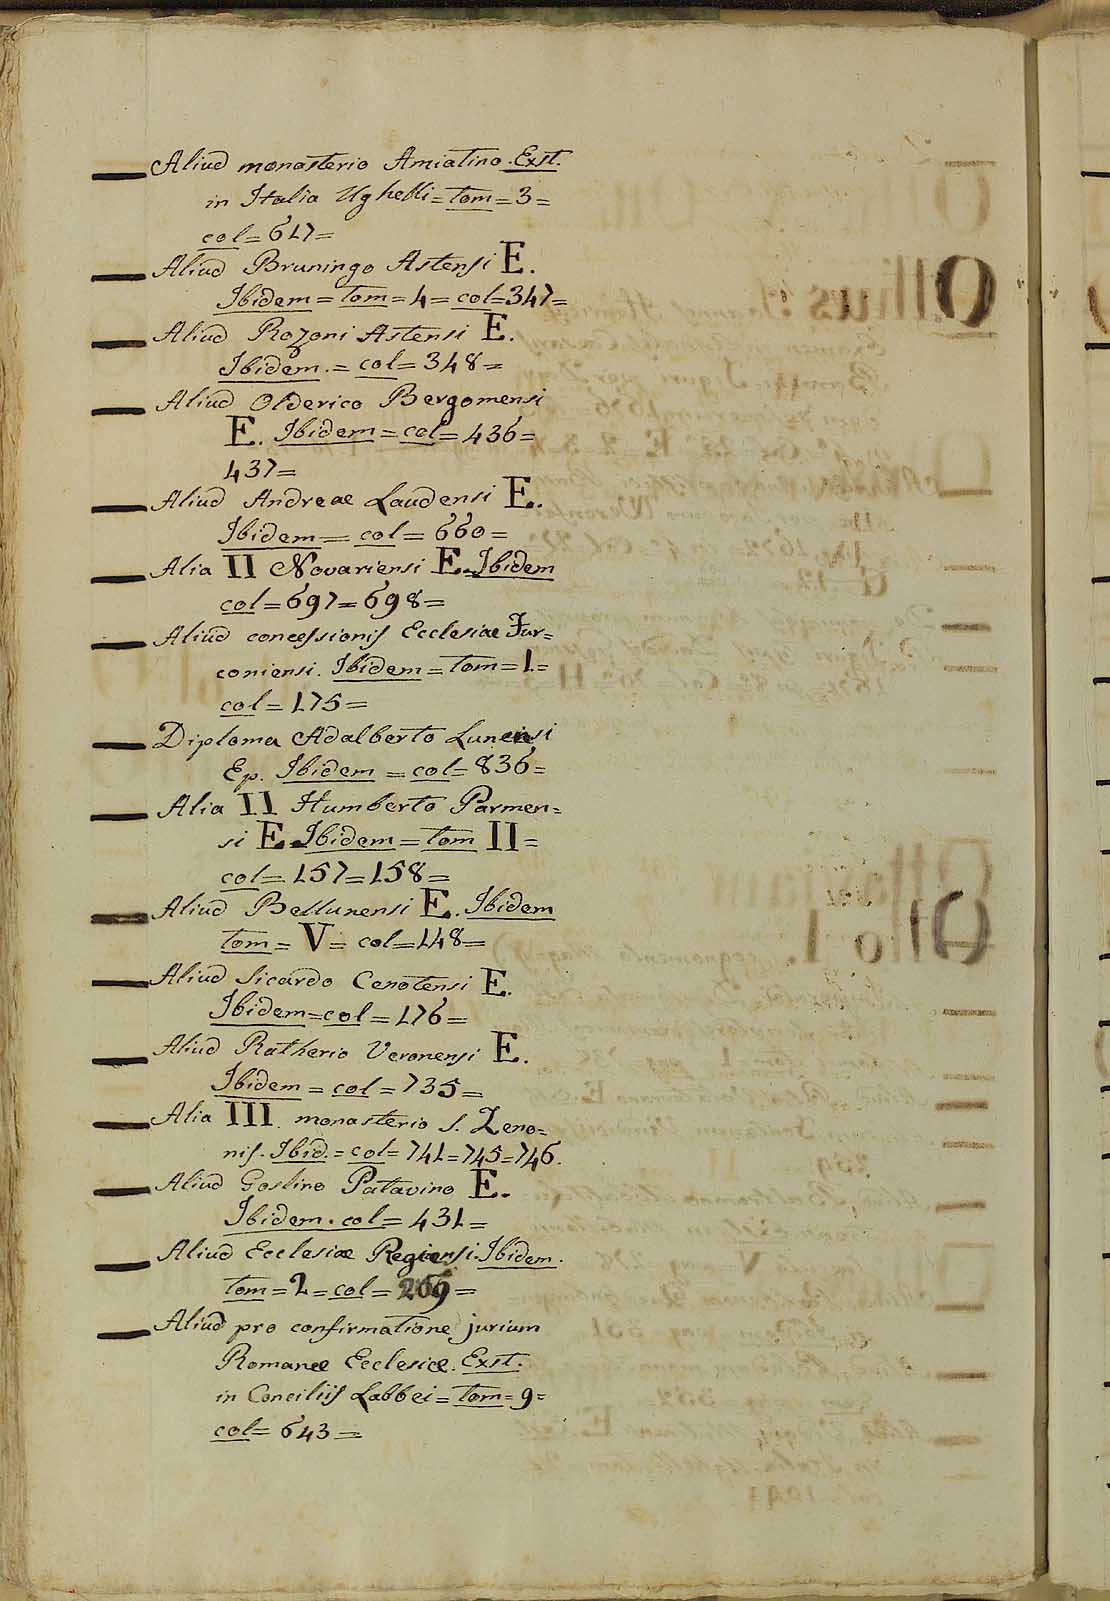 Aliud monasterio Amiatino. Exst.
in Italia Ughelli = tom = 3 =
col = 617 =
Aliud Bruningo Astensi E.
Ibidem = tom = 4 = col = 347 =
Aliud Rozoni Astensi E.
Ibidem. = col = 348 =
Aliud Olderico Bergomensi
E. Ibidem = col = 436 =
437 =
Aliud Andreae Laudensi E.
Ibidem = col = 660 =
Alia II Novariensi E. Ibidem
col = 697 = 698 =
Aliud concessionis Ecclesiae Fur=
coniensi. Ibidem = tom = 1 =
col = 175 =
Diploma Adalberto Lunensi
Ep. Ibidem = col = 836 =
Alia II Humberto Parmen=
si E. Ibidem = tom II =
col = 157 = 158 =
Aliud Bellunensi E. Ibidem
tom = V = col = 148 =
Aliud Sicardo Cenotensi E.
Ibidem = col = 176 =
Aliud Ratherio Veronensi E.
Ibidem = col = 735 =
Alia III. monasterio S. Zeno=
nis. Ibid. = col = 741 = 745 = 746.
Aliud Goslino Patavino E.
Ibidem. col = 431 =
Aliud Ecclesiae Regiensi. Ibidem.
tom = 2 = col = 269 =
Aliud pro confirmatione jurium
Romanae Ecclesiae. Exst.
in Conciliis Labbei = tom = 9 =
col = 643 =